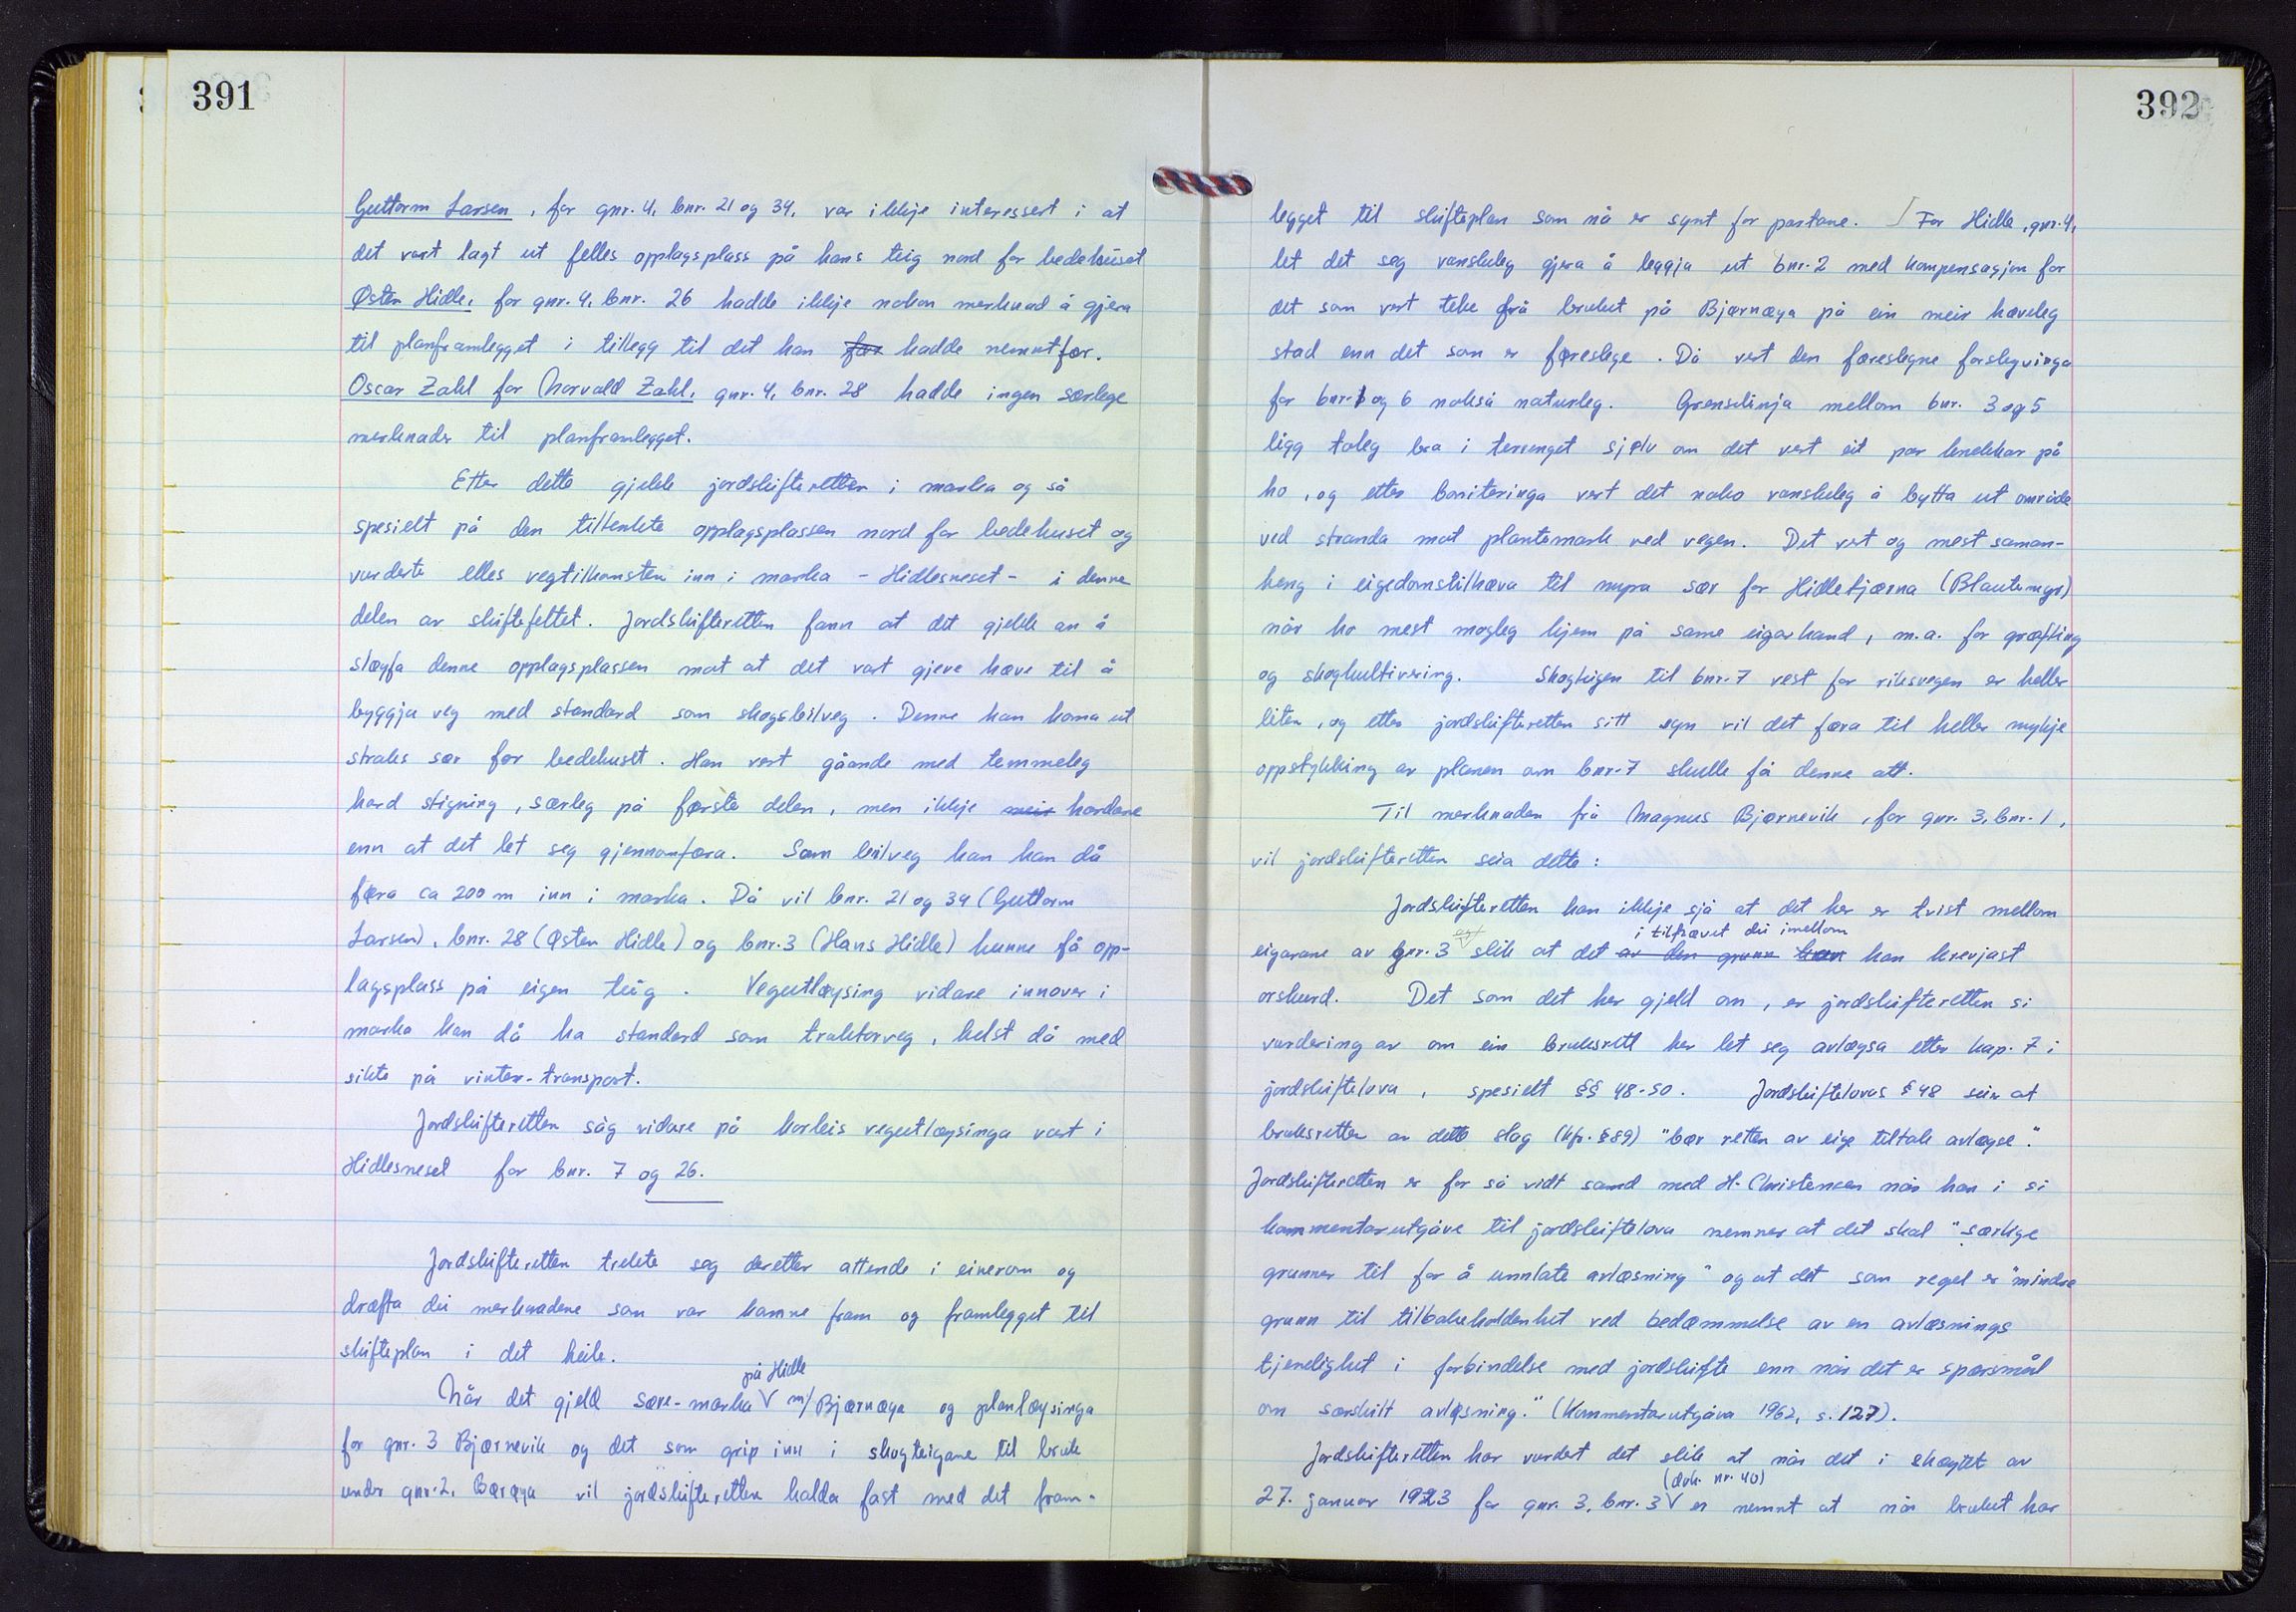 391
Guttorm Larsen, for gnr. 4, bnr. 21 og 34, var ikkje interessert i at
det vart lagt ut felles opplagsplass på hans teig nord for bedehuset
Østen Hidle, for gnr. 4, bnr. 26 hadde ikkje nokon merknad å gjera
til planframlegget i tillegg til det han før hadde nemnt før.
Oscar Zahl for Norvald Zahl, gnr. 4, bnr. 28 hadde ingen særlege
merknader til planframlegget.
Etter dette gjekk jordskifteretten i marka og så
spesielt på den tiltenkte opplagsplassen nord for bedehuset og
vurderte elles vegtilkomsten inn i marka - Hidlesneset - i denne
delen av skiftefeltet. Jordskifteretten fann at det gjekk an å
sløyfa denne opplagsplassen mot at det vart gjeve høve til å
byggja veg med standard som skogsbilveg. Denne kan koma ut
straks sør for bedehuset. Han vert gåande med temmeleg
hard stigning, særleg på første delen, men ikkje meir hardare
enn at det let seg gjennomføra. Som bilveg kan han då
føra ca 200 m inn i marka. Då vil bnr. 21 og 34 (Guttorm
Larsen), bnr. 28 (Østen Hidle) og bnr. 3 (Hans Hidle) kunne få opp-
lagsplass på eigen teig. Vegutløysing vidare innover i
marka kan då ha standard som traktorveg, helst då med
sikte på vinter-transport.
Jordskifteretten såg vidare på korleis vegutløysinga vart i
Hidlesneset for bnr. 7 og 26.
Jordskifteretten trekte seg deretter attende i einerom og
drøfta dei merknadene som var komne fram og framlegget til
skifteplan i det heile.
Når det gjeld søre-marka på Hidle m/Bjørnøya og planløysinga
for gnr. 3 Bjørnevik og det som grip inn i skogteigane til bruk
under gnr. 2, Borøya vil jordskifteretten halda fast med det fram-
392
legget til skifteplan som nå er synt for partane. For Hidle, gnr. 4,
let det seg vanskeleg gjera å leggja ut bnr. 2 med kompensasjon for
det som vert teke frå bruket på Bjørnøya på ein meir høveleg
stad enn det som er føreslege. Då vert den føreslegne forskyvinga
for bnr. 1 og 6 nokså naturleg. Grenselinja mellom bnr. 3 og 5
ligg toleg bra i terrenget sjølv om det vert eit par knekkar på
ho, og etter boniteringa vert det noko vanskeleg å bytta ut område
ved stranda mot plantemark ved vegen. Det vert og mest saman-
heng i eigedomstilhøva til myra sør for Hidletjørna (Blautemyr)
når ho mest mogleg kjem på same eigarhand, m.a. for grøfting
og skogkultivering. Skogteigen til bnr. 7 vest for riksvegen er heller
liten, og etter jordskifteretten sitt syn vil det føra til heller mykje
oppstykking av planen om bnr. 7 skulle få denne att.
Til merknaden frå Magnus Bjørnevik, for gnr. 3, bnr. 1,
vil jordskifteretten seia dette:
Jordskifteretten kan ikkje sjå at det her er tvist mellom
eigarane av gnr. 3 slik at det av den grunn kan i tilhøvet dei imellom kan krevjast
orskurd. Det som det her gjeld om, er jordskifteretten si
vurdering av om ein bruksrett her let seg avløysa etter kap. 7 i
jordskiftelova, spesielt §§ 48-50. Jordskiftelovas § 48 seier at
bruksretter av dette slag (kfr. § 89) "bør retten av eige tiltak avløyse".
Jordskifteretten er for så vidt samd med H. Christensen når han i si
kommentarutgåve til jordskiftelova nemner at det skal "særlige
grunner til for å unnlate avløsning" og at det som regel er "mindre
grunn til tilbakeholdenhet ved bedømmelse av en avløsnings
tjenelighet i forbindelse med jordskifte enn når det er spørsmål
om særskilt avløsning." (Kommentarutgåva 1962, s. 127).
Jordskifteretten har vurdert det slik at når det i skøytet av
27. januar 1923 for gnr. 3, bnr. 3 (dok. nr. 40) er nemnt at når bruket har